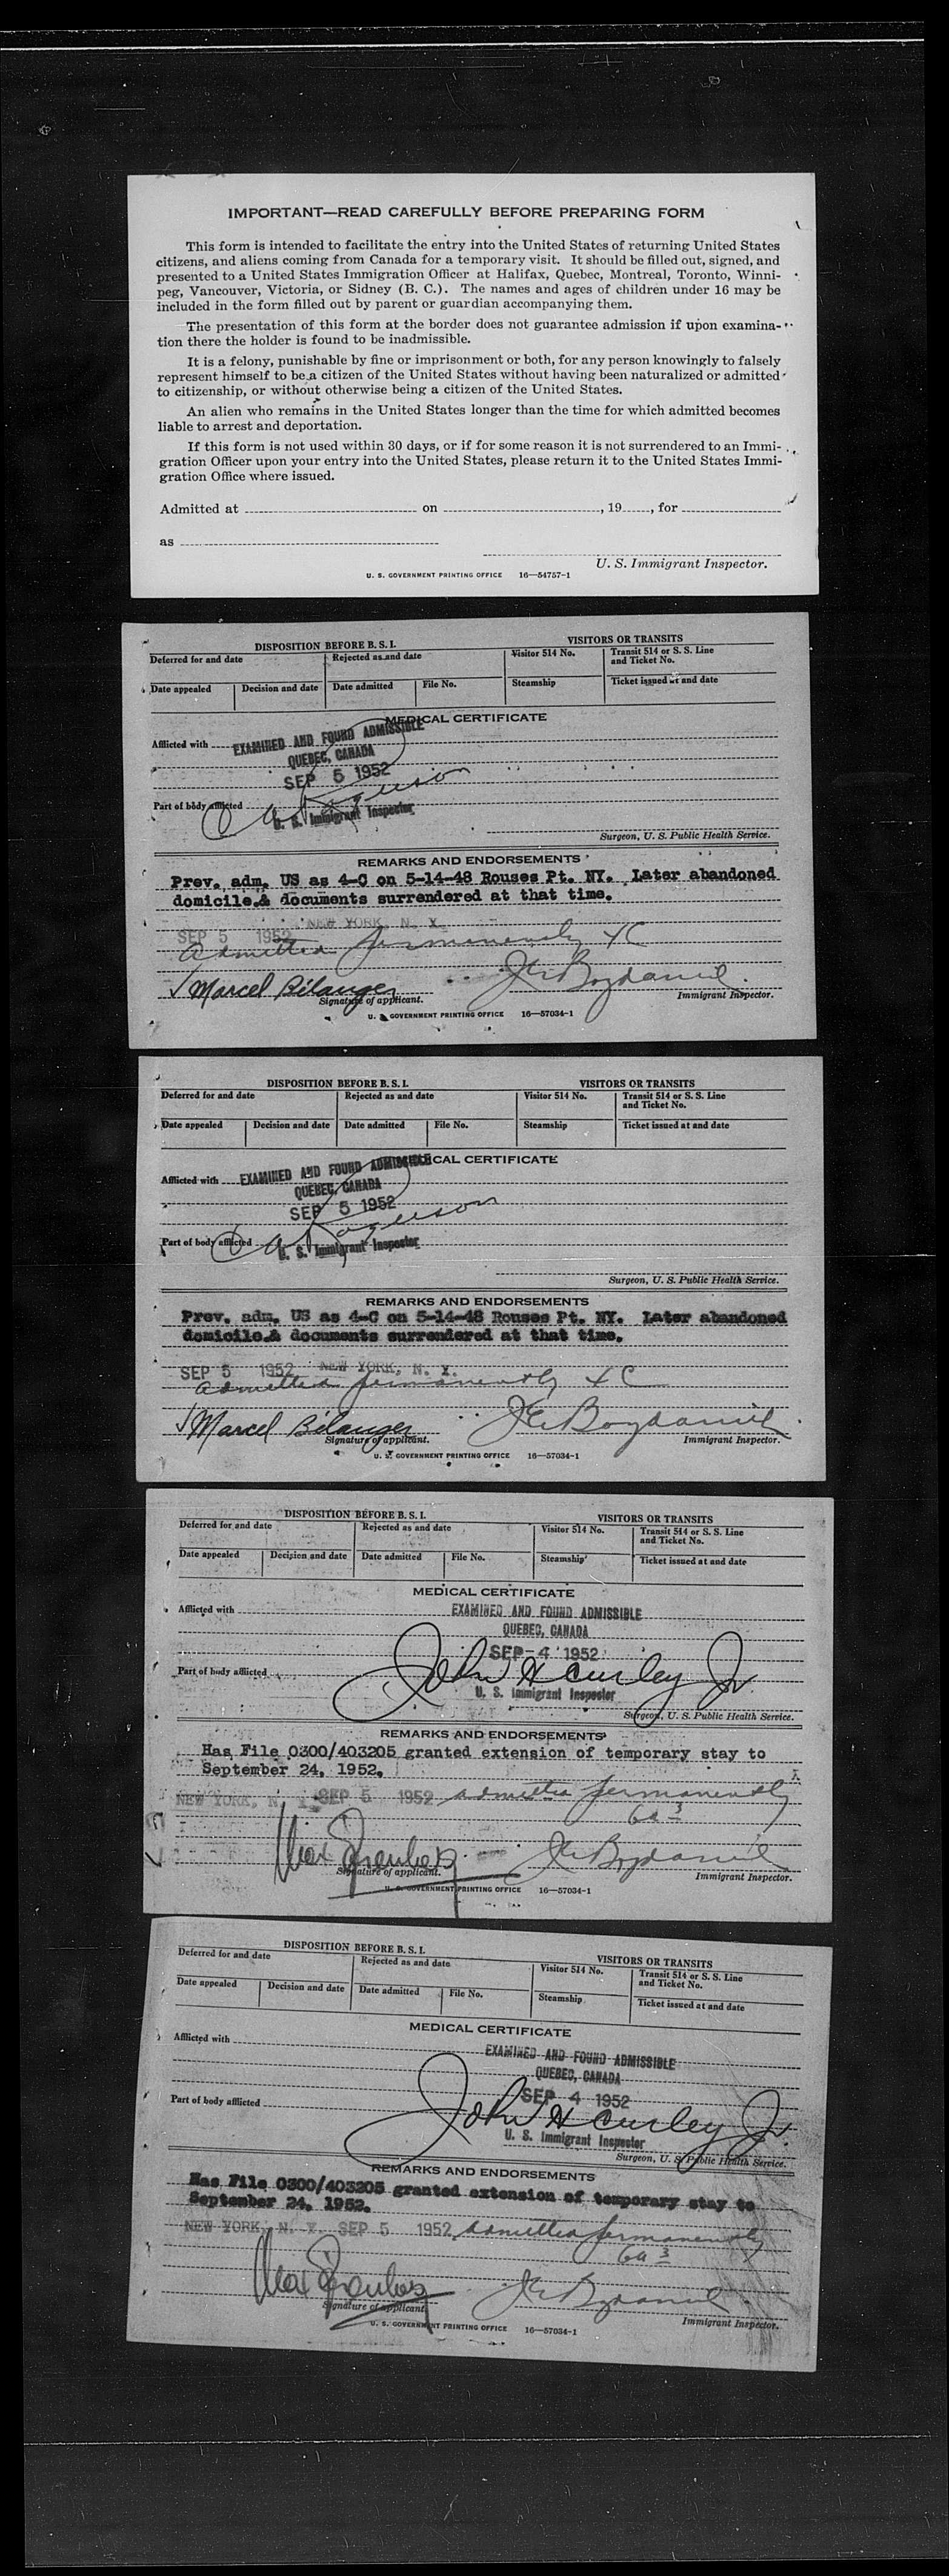 IMPORTANT—READ CAREFULLY BEFORE PREPARING FORM
This form is intended to facilitate the entry into the United States of returning United States
citizens, and aliens coming from Canada for a temporary visit. It should be filled out, signed, and
presented to a United States Immigration Officer at Halifax, Quebec, Montreal, Toronto, Winni-
peg, Vancouver, Victoria, or Sidney (B. C.). The names and ages of children under 16 may be
included in the form filled out by parent or guardian accompanying them.
The presentation of this form at the border does not guarantee admission if upon examina-
tion there the holder is found to be inadmissible.
It is a felony, punishable by fine or imprisonment or both, for any person knowingly to falsely
represent himself to be a citizen of the United States without having been naturalized or admitted
to citizenship, or without otherwise being a citizen of the United States.
An alien who remains in the United States longer than the time for which admitted becomes
liable to arrest and deportation.
If this form is not used within 30 days, or if for some reason it is not surrendered to an Immi-
gration Officer upon your entry into the United States, please return it to the United States Immi-
gration Office where issued.
Admitted at on , 19 , for
as
U. S. Immigrant Inspector.
U. S. GOVERNMENT PRINTING OFFICE 16—54757-1
DISPOSITION BEFORE B. S. I. VISITORS OR TRANSITS
Deferred for and date Rejected as and date Visitor 514 No. Transit 514 or S. S. Line
and Ticket No.
Date appealed Decision and date Date admitted File No. Steamship Ticket issued at and date
MEDICAL CERTIFICATE
Afflicted with EXAMINED AND FOUND ADMISSIBLE
QUEBEC, CANADA
SEP 5 1952
Part of body afflicted
U. S. Immigrant Inspector
Surgeon, U. S. Public Health Service.
REMARKS AND ENDORSEMENTS
Prev. adm. US as 4-C on 5-14-48 Rouses Pt. NY. Later abandoned
domicile.& documents surrendered at that time.
SEP 5 1952 NEW YORK, N. Y.
Admitted permanently 4C
Marcel Bélanger
Signature of applicant. Immigrant Inspector.
U. S. GOVERNMENT PRINTING OFFICE 16—57034-1
DISPOSITION BEFORE B. S. I. VISITORS OR TRANSITS
Deferred for and date Rejected as and date Visitor 514 No. Transit 514 or S. S. Line
and Ticket No.
Date appealed Decision and date Date admitted File No. Steamship Ticket issued at and date
MEDICAL CERTIFICATE
Afflicted with EXAMINED AND FOUND ADMISSIBLE
QUEBEC, CANADA
SEP 5 1952
Part of body afflicted
U. S. Immigrant Inspector
Surgeon, U. S. Public Health Service.
REMARKS AND ENDORSEMENTS
Prev. adm. US as 4-C on 5-14-48 Rouses Pt. NY. Later abandoned
domicile.& documents surrendered at that time.
SEP 5 1952 NEW YORK, N. Y.
Admitted permanently 4C
Marcel Bélanger
Signature of applicant. Immigrant Inspector.
U. S. GOVERNMENT PRINTING OFFICE 16—57034-1
DISPOSITION BEFORE B. S. I. VISITORS OR TRANSITS
Deferred for and date Rejected as and date Visitor 514 No. Transit 514 or S. S. Line
and Ticket No.
Date appealed Decision and date Date admitted File No. Steamship Ticket issued at and date
MEDICAL CERTIFICATE
Afflicted with EXAMINED AND FOUND ADMISSIBLE
QUEBEC, CANADA
SEP 4 1952
Part of body afflicted John H Curley Jr.
U. S. Immigrant Inspector
Surgeon, U. S. Public Health Service.
REMARKS AND ENDORSEMENTS
Has File 0300/403205 granted extension of temporary stay to
September 24, 1952.
NEW YORK, N. Y. SEP 5 1952 admitted permanently
6a3
Signature of applicant. Immigrant Inspector.
U. S. GOVERNMENT PRINTING OFFICE 16—57034-1
DISPOSITION BEFORE B. S. I. VISITORS OR TRANSITS
Deferred for and date Rejected as and date Visitor 514 No. Transit 514 or S. S. Line
and Ticket No.
Date appealed Decision and date Date admitted File No. Steamship Ticket issued at and date
MEDICAL CERTIFICATE
Afflicted with EXAMINED AND FOUND ADMISSIBLE
QUEBEC, CANADA
SEP 4 1952
Part of body afflicted John H Curley Jr.
U. S. Immigrant Inspector
Surgeon, U. S. Public Health Service.
REMARKS AND ENDORSEMENTS
Has File 0300/403205 granted extension of temporary stay to
September 24, 1952.
NEW YORK, N. Y. SEP 5 1952 admitted permanently
6a3
Signature of applicant. Immigrant Inspector.
U. S. GOVERNMENT PRINTING OFFICE 16—57034-1